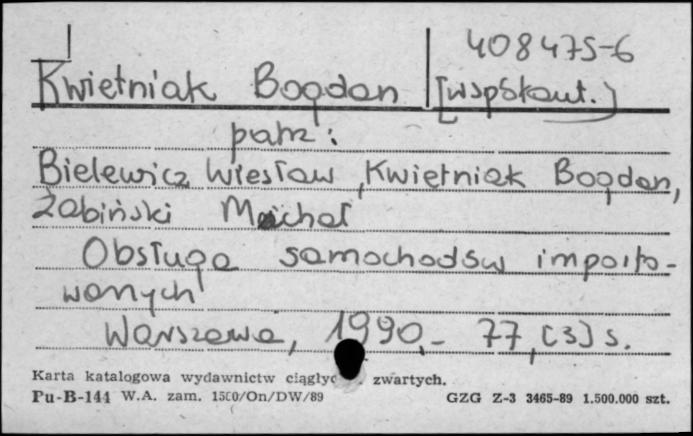 408475-6
Kwietniak Bogdan [współaut.]
patrz:
Bielewicz Wiesław, Kwietniak Bogdan,
Żabiński Michał
Obsługa samochodów importo-
wanych
Warszawa, 1990.- 77,[3] s.
Karta katalogowa wydawnictw ciągłyc zwartych.
Pu-B-144 W.A. zam. 1500/On/DW/89 GZG Z-3 3465-89 1.500.000 szt.